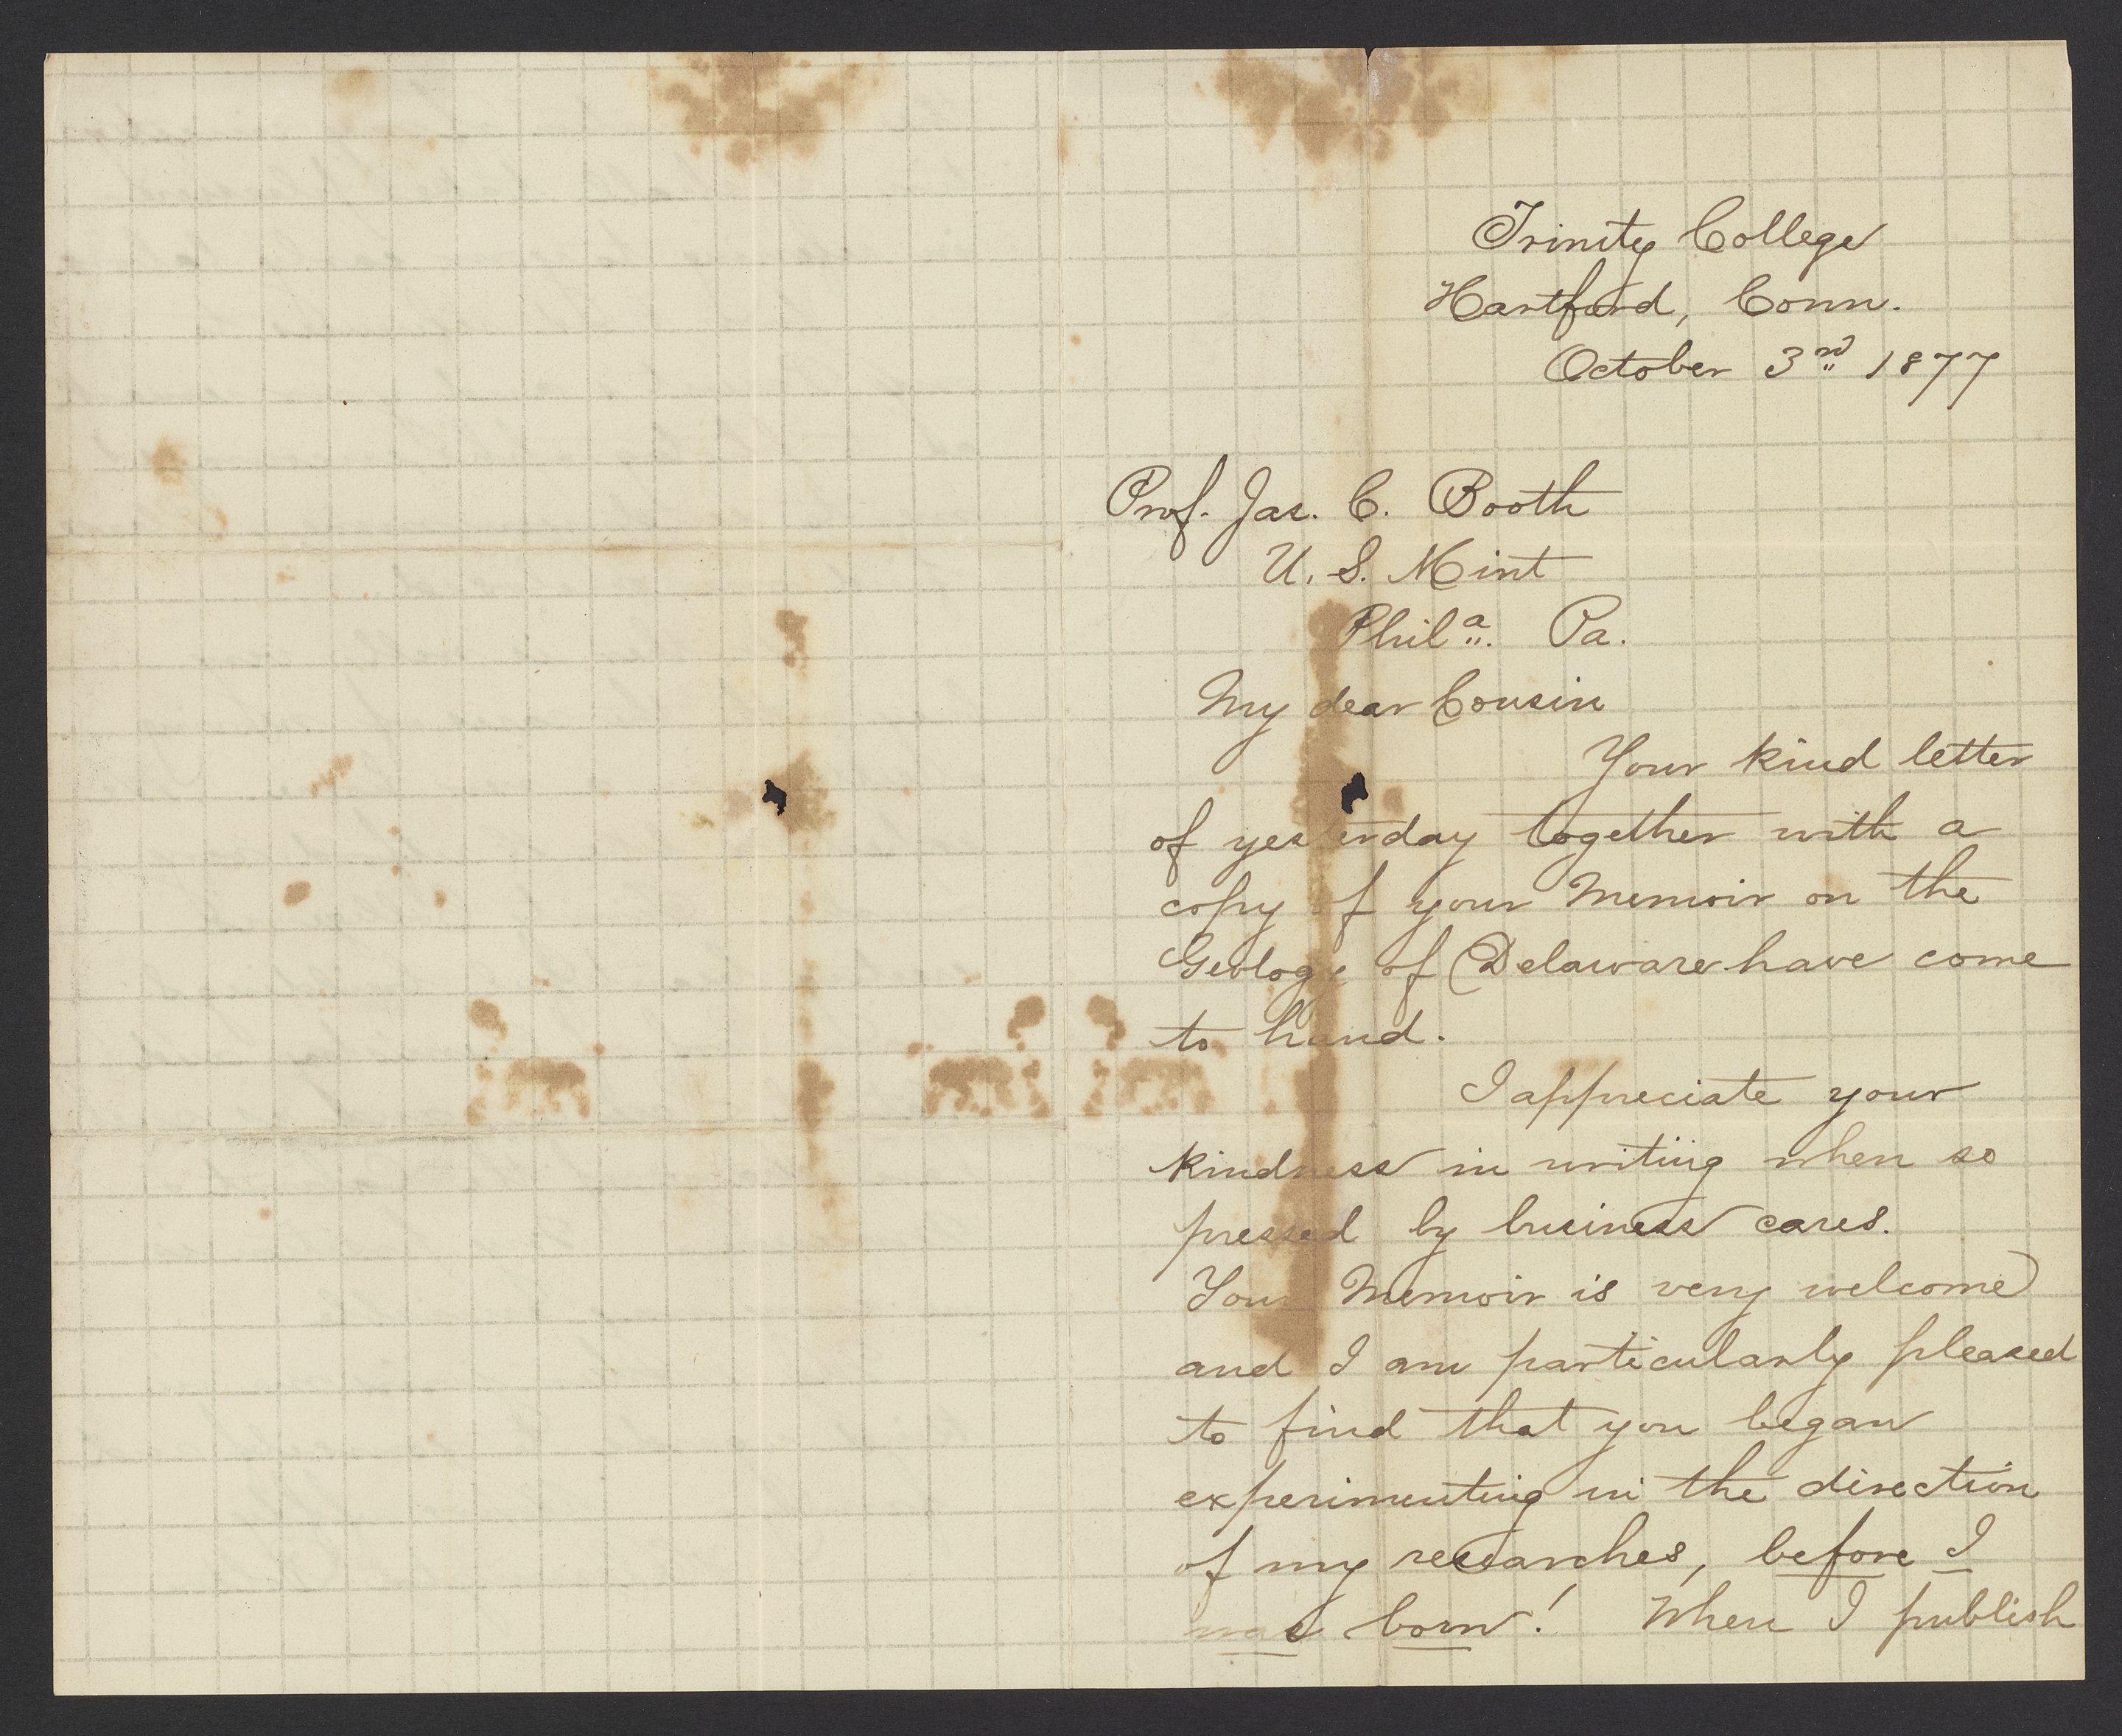 Trinity College
Hartford, Conn.
October 3rd 1877
Prof. Jas. C. Booth
U. S. Mint
Phila. Pa.
My dear Cousin
Your kind letter
of yesterday together with a
copy of your Memoir on the
Geology of Delaware have come
to hand.
I appreciate your
kindness in writing when so
pressed by business cares.
Your Memoir is very welcome
and I am particularly pleased
to find that you began
experimenting in the direction
of my researches, before I
was born! When I publish